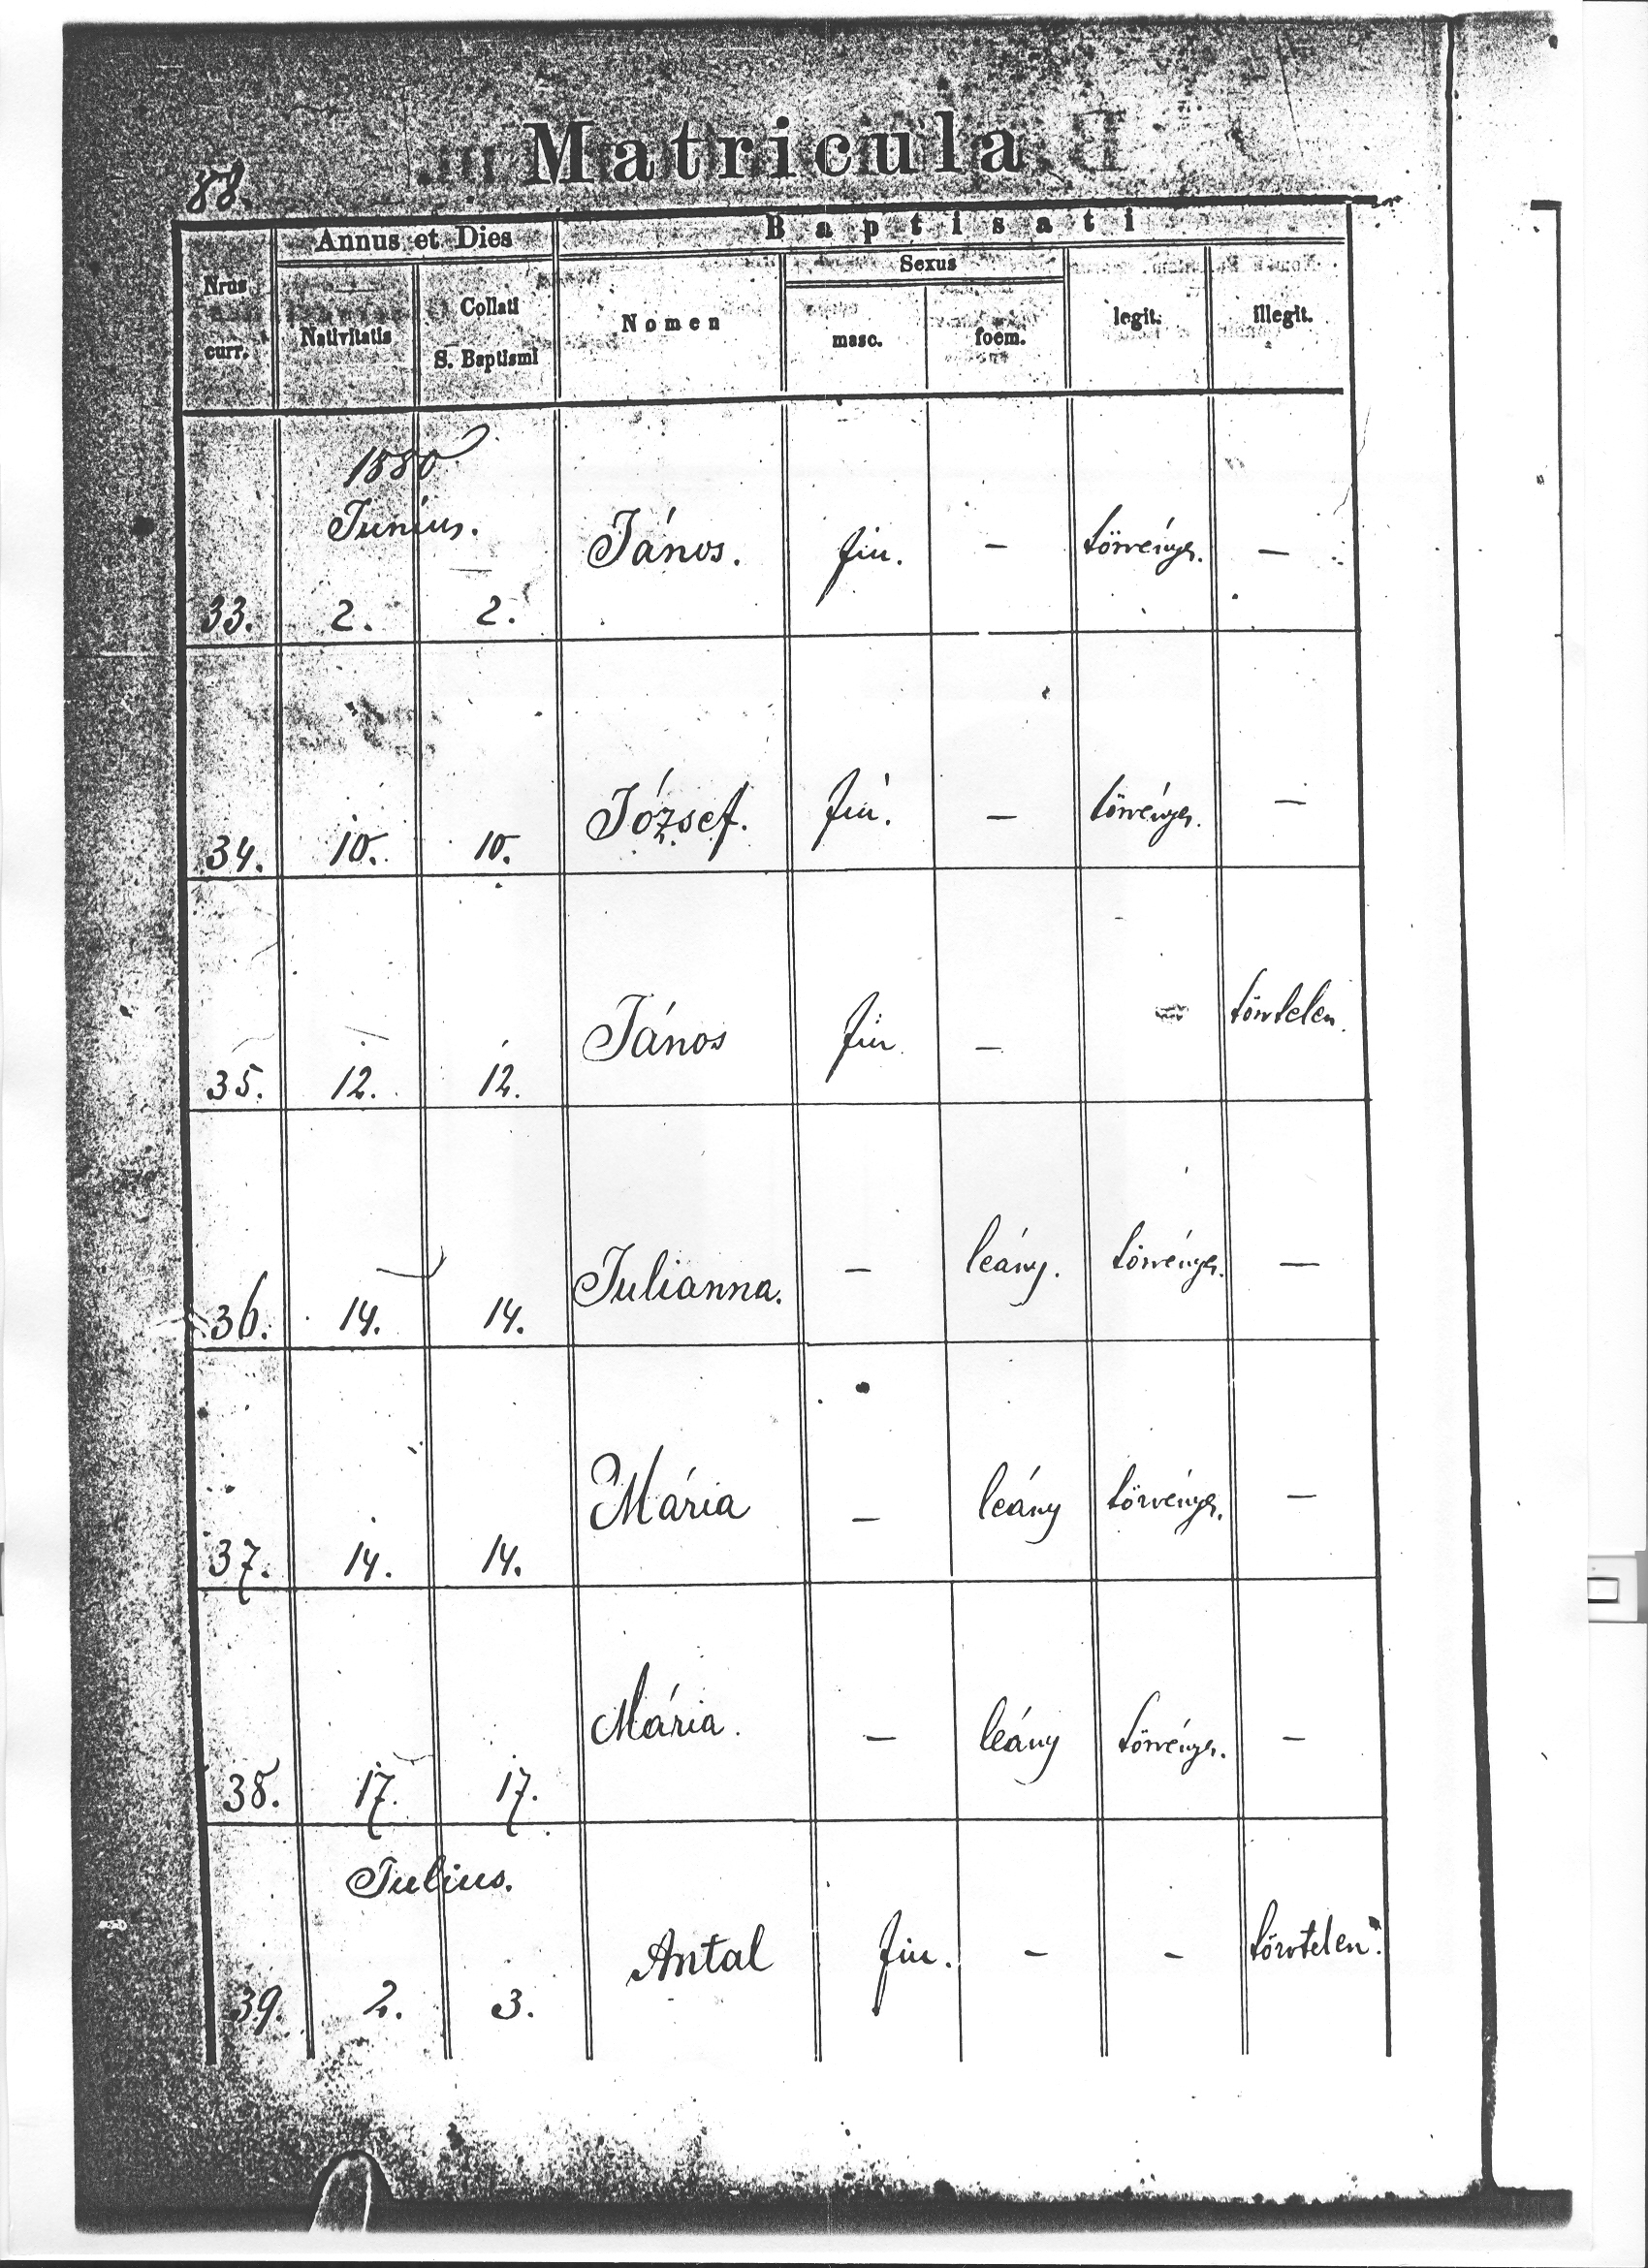 88.
Matricula
Annus et Dies
Baptisati
Nrus curr.
Nativitatis
Collati S. Baptismi
Nomen
Sexus
masc.
foem.
legit.
illegit.
1880
Junius.
33. 2. 2. János. fiu. — törvényes. —
34. 10. 10. József. fiú. — törvényes. —
35. 12. 12. János fiu — törvtelen.
36. 14. 14. Julianna. — leány. törvényes. —
37. 14. 14. Mária — leány törvényes. —
38. 17. 17. Mária. — leány törvényes. —
Julius.
39. 2. 3. Antal fiu. — — törvtelen.